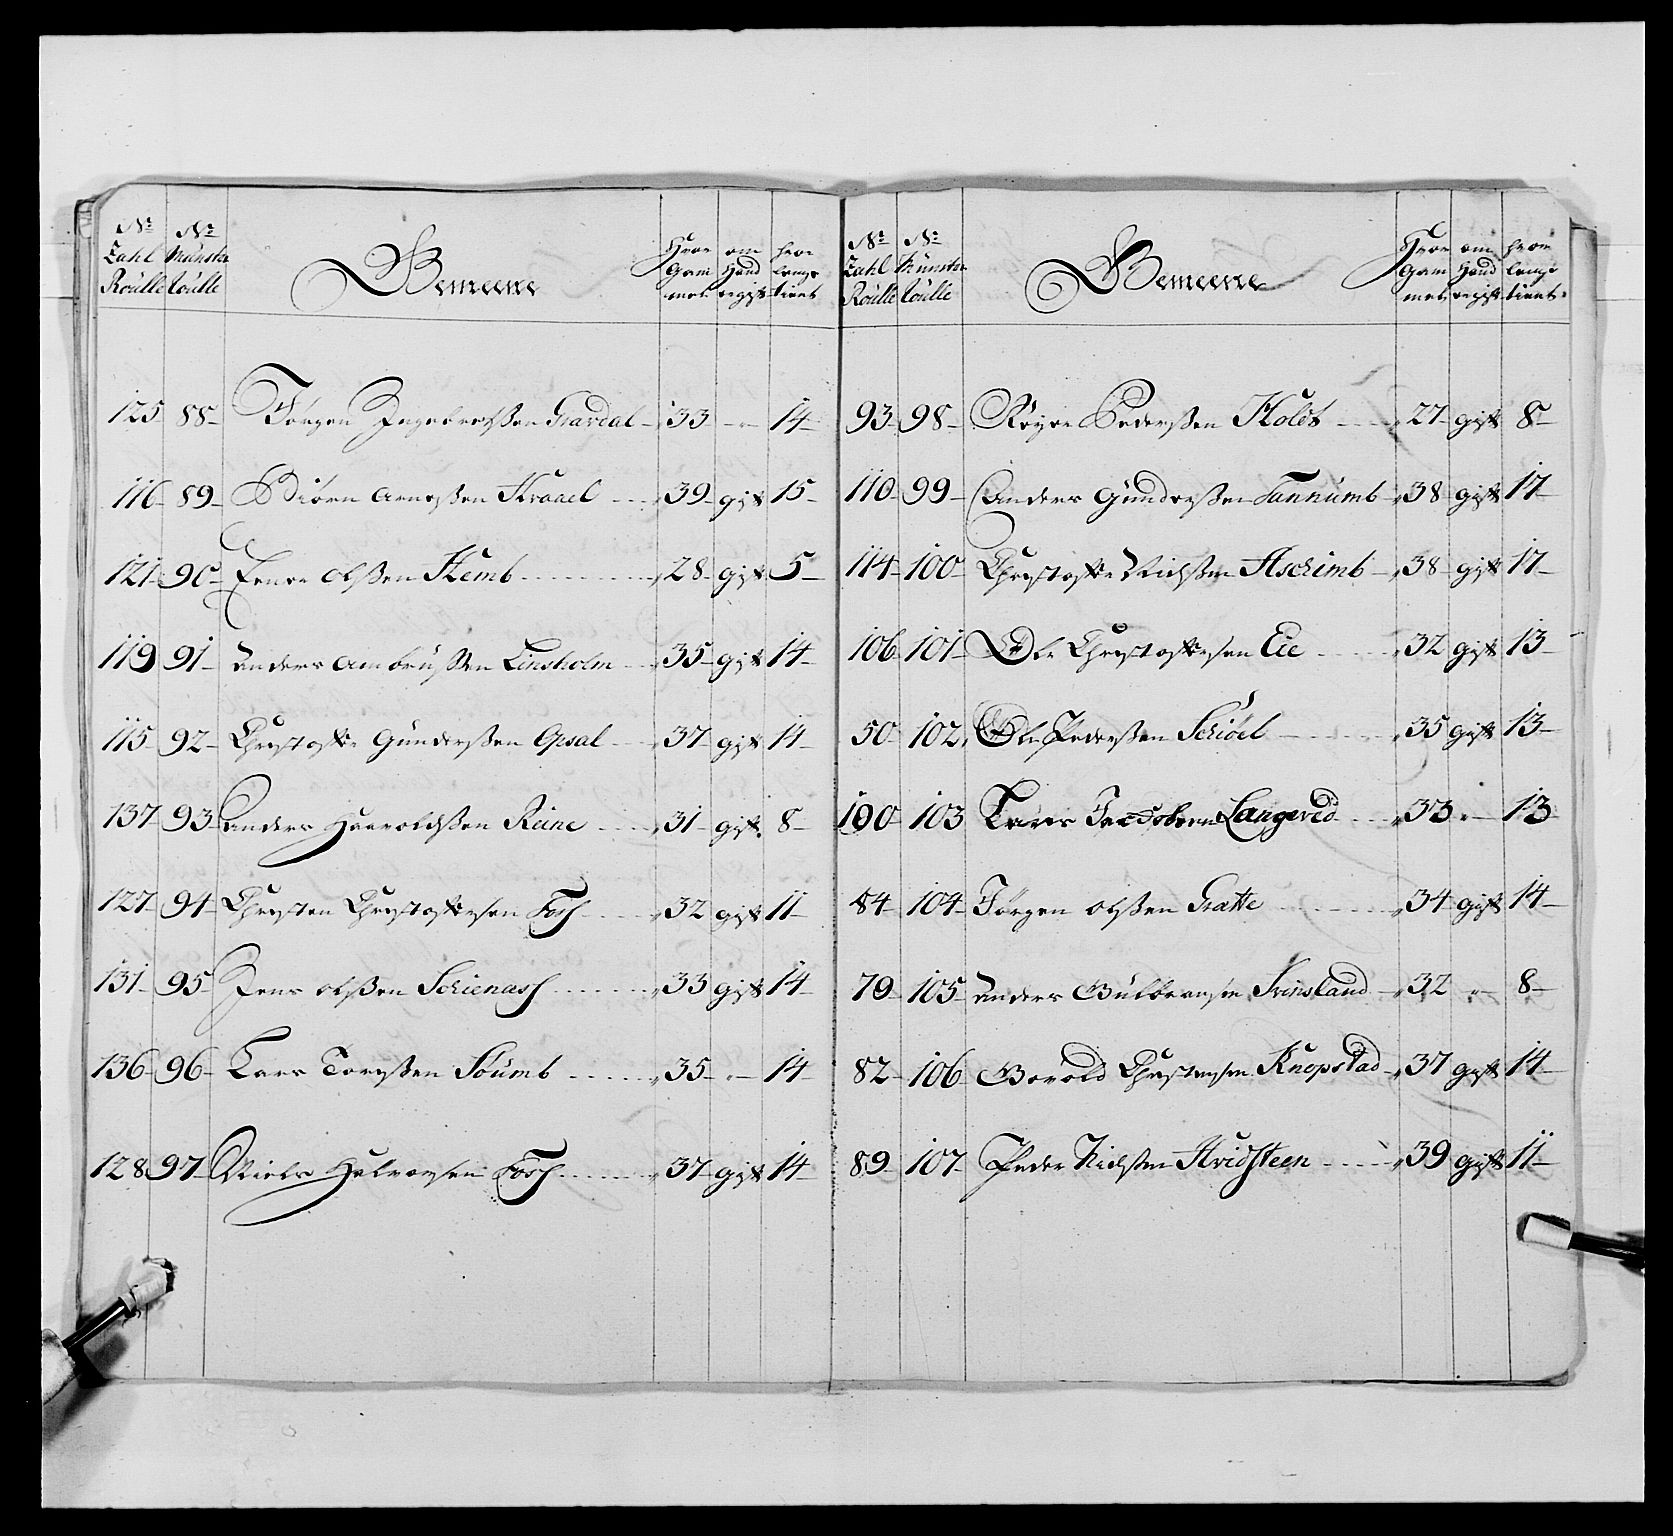 No Zahl Roulle | No Munster Roulle | Gemeene | Hvor Gammel | om Hand er gift | hvor lenge tient
125 88 Jørgen Ingebretßen Gravdal 33 - 14
116 89 Biørn Arneßen Kraael 39 gift 15
121 90 Enor Olßen Hemb 28 gift 5
119 91 Anders Ambrüßen Linsholm 35 gift 14
115 92 Christoffer Günderßen Opsal 37 gift 14
137 93 Anders Harroldßen Reine 31 gift 8
127 94 Christen Christoffersen Foss 32 gift 11
131 95 Jens Olßen Schienass 33 gift 14
136 96 Lars Torsßen Soumb 35 - 14
128 97 Niels Halvorsen Foss 37 gift 14
No Zahl Roulle | No Munster Roulle | Gemeene | Hvor Gammel | om Hand er gift | hvor lenge tient
93 98 Røyer Pederßen Holdt 27 gift 8
110 99 Anders Günderßen Tannumb 38 gift 17
114 100 Christoffer Nielsßen Aschimb 38 gift 17
106 101 Ole Christoffersen Eie 32 gift 13
50 102 Ole Pederßen Schiöel 35 gift 13
100 103 Lars Jacobsen Langerød 33 - 13
84 104 Jørgen Olßen Gratte 34 gift 14
79 105 Anders Gulbransen Svinsland 32 - 8
82 106 Borold Christensen Knopstad 37 gift 14
89 107 Peder Nielsßen Hvidsteen 39 gift 11